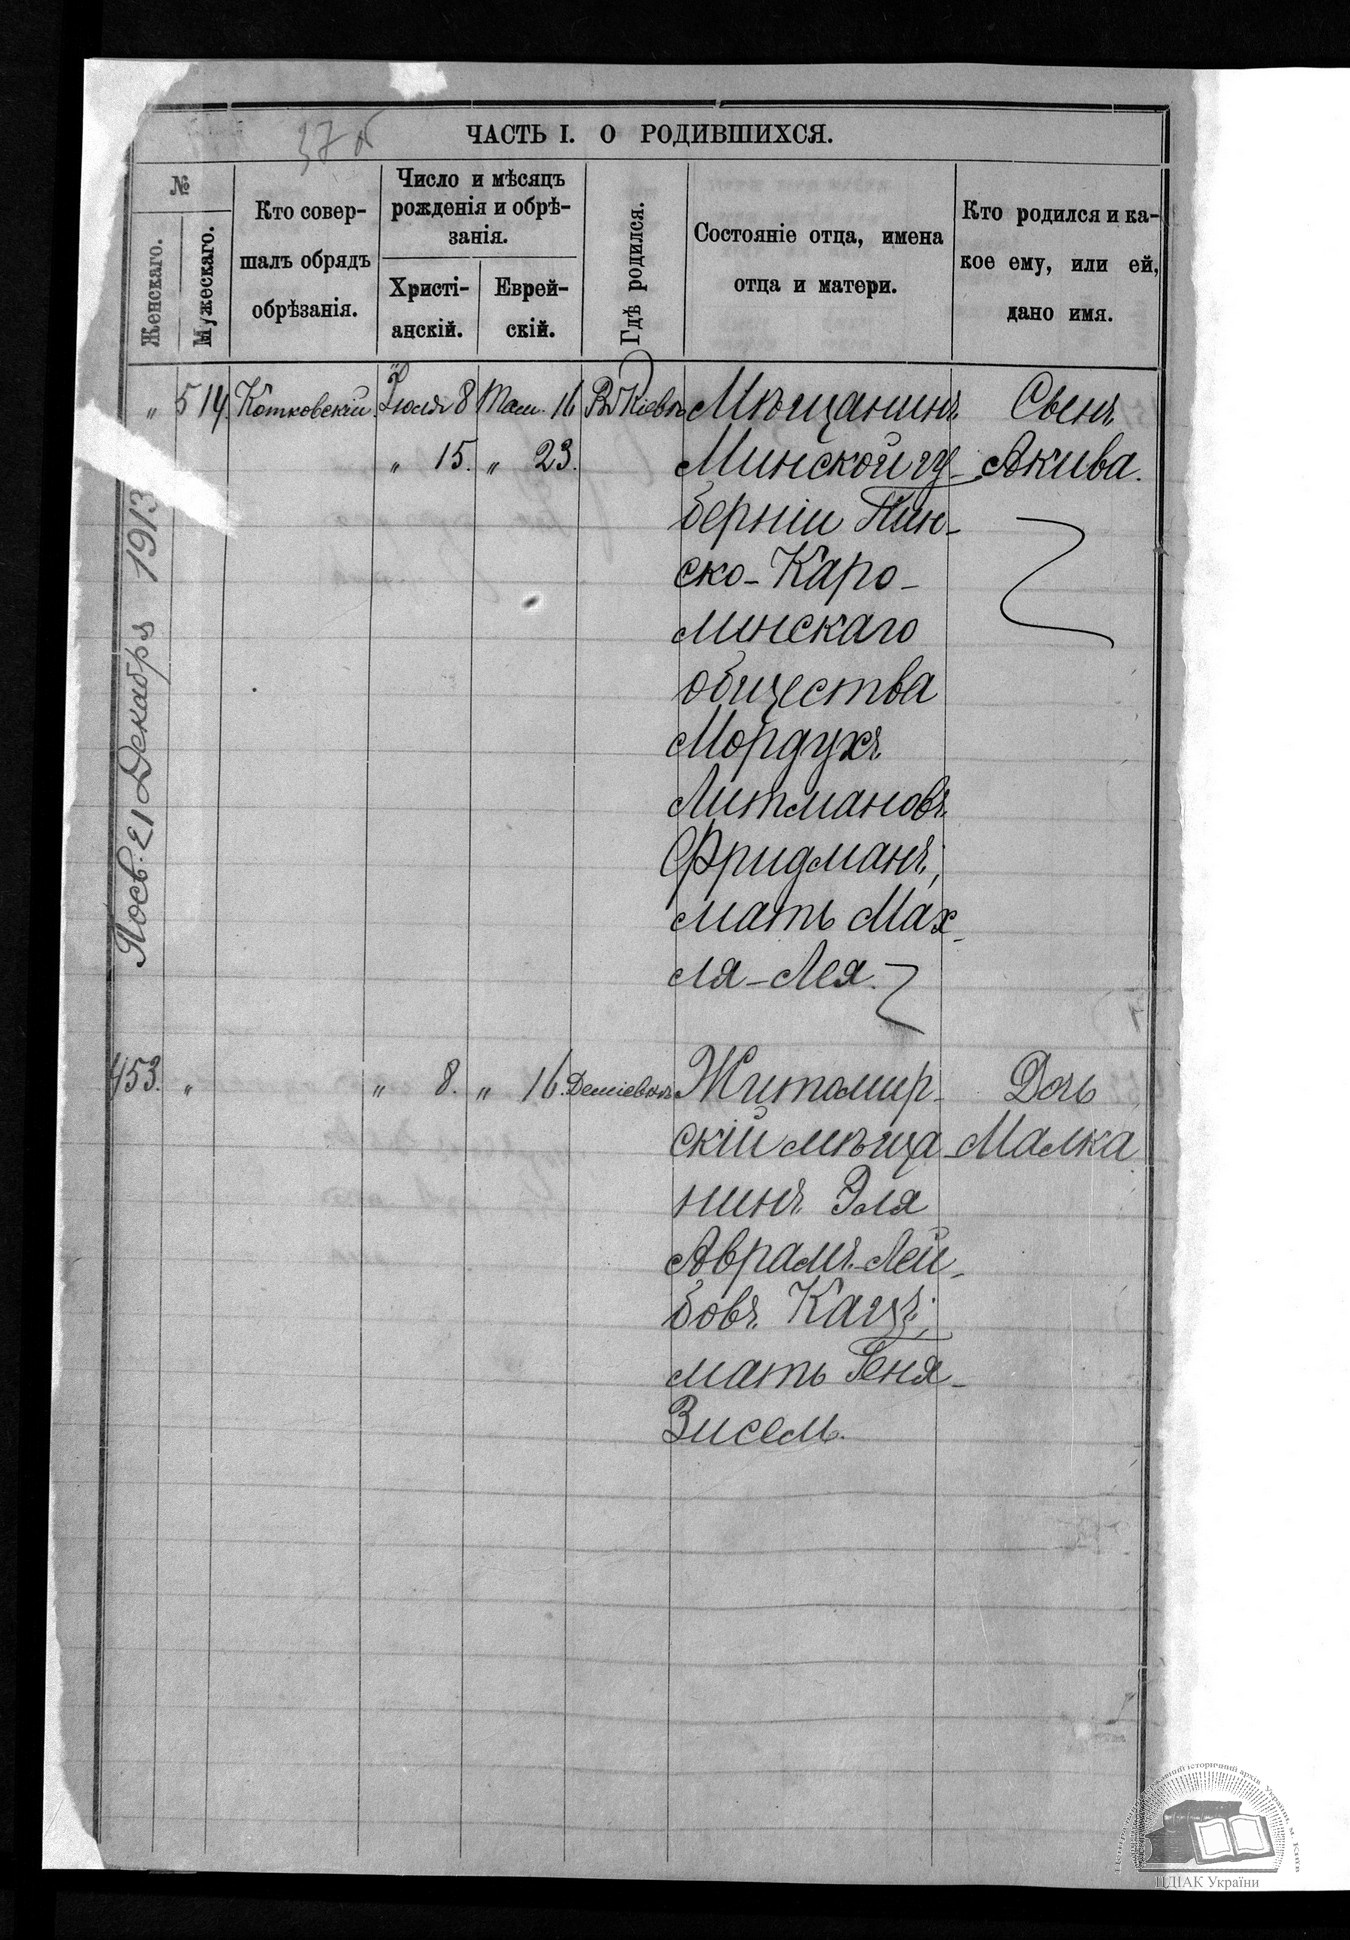 37 об
ЧАСТЬ I. О РОДИВШИХСЯ.
№
Женскаго.
Мужескаго.
Кто совер-
шалъ обрядъ
обрѣзанія.
Число и мѣсяцъ
рожденія и обрѣ-
занія.
Христі-
анскій.
Еврей-
скій.
Гдѣ родился.
Состояніе отца, имена
отца и матери.
Кто родился и ка-
кое ему, или ей,
дано имя.
„ 514. Котковскій. Іюля 8 Там. 16 Въ Кіевѣ Мѣщанинъ Сынъ
„ 15. „ 23. Минской гу- Акива.
берніи Пин-
ско-Каро-
линскаго
общества
Мордухъ
Литмановъ
Фридманъ;
мать Мах-
ля-Лея.
453. „ „ 8. „ 16. Деміевкѣ Житомир- Дочь
скій мѣща- Малка
нинъ Эля
Аврамъ-Лей-
бовъ Кацъ;
мать Геня-
Зисель.
Посв. 21 Декабря 1913
ЦДІАК України